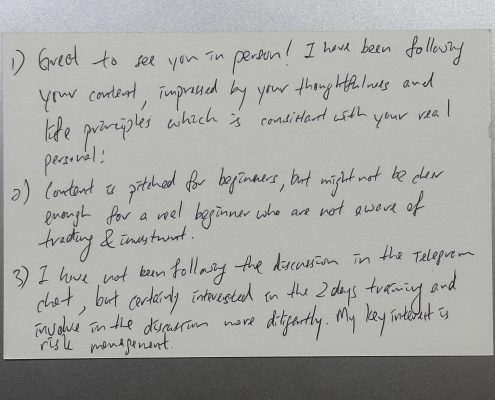 1) Great to see you in person! I have been following
your content, impressed by your thoughtfulness and
life principles which is consistant with your real
personal!
2) Content is pitched for beginners, but might not be clear
enough for a real beginner who are not aware of
trading & investment.
3) I have not been following the discussion in the Telegram
chat, but certainly interested in the 2 days training and
involve in the discussion more diligently. My key interest is
risk management.